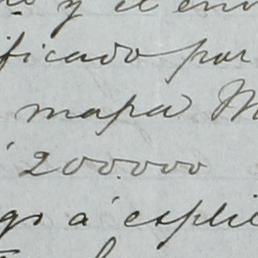 y el en
ificado por
mapa M
200.000
go á espli